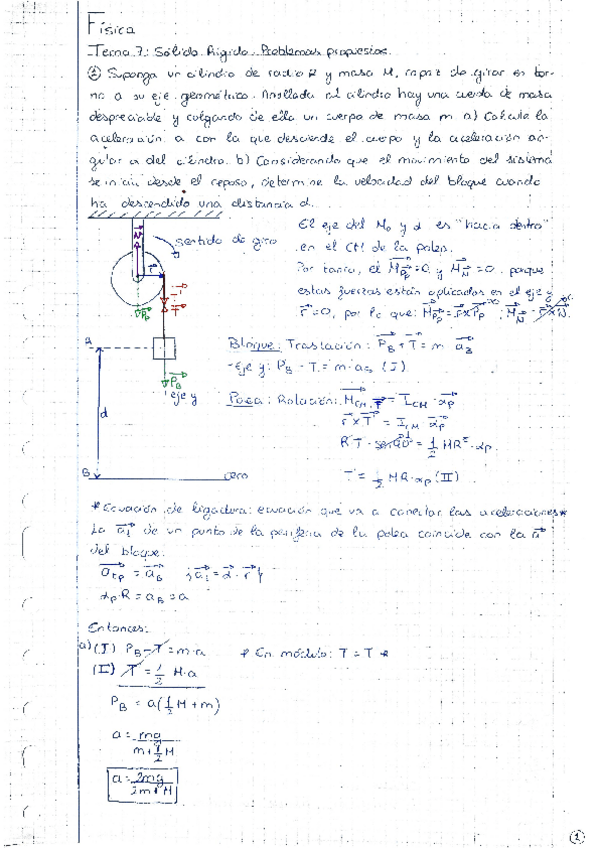 Física
Tema 7: Sólido Rígido. Problemas propuestos.
① Suponga un cilindro de radio R y masa M, capaz de girar en tor-
no a su eje geométrico. Arrollada al cilindro hay una cuerda de masa
despreciable y colgando de ella un cuerpo de masa m. a) Calcule la
aceleración a con la que desciende el cuerpo y la aceleración an-
gular α del cilindro. b) Considerando que el movimiento del sistema
se inicia desde el reposo, determine la velocidad del bloque cuando
ha descendido una distancia d.
sentido de giro
El eje del M₀ y α es "hacia dentro"
en el CM de la polea.
Por tanto, el M_Pp = 0 y M_N = 0, porque
estas fuerzas están aplicadas en el eje y
r = 0, por lo que: M_Pp = r x Pp ; M_N = r x N.
Bloque: Traslación: P_B + T = m · a_B
- Eje y: P_B - T = m · a_B (I)
eje y
Polea: Rotación: M_CM,T = I_CM · α_P
r x T = I_CM · α_P
R · T · sen 90 = 1/2 MR² · α_P
T = 1/2 MR · α_P (II)
A
d
B
cero
* Ecuación de ligadura: ecuación que va a conectar las aceleraciones *
La a_t de un punto de la periferia de la polea coincide con la a
del bloque.
a_tp = a_B ¡a_t = α · r!
α_P · R = a_B = a
Entonces:
a) (I) P_B - T = m · a * En módulo: T = T *
(II) T = 1/2 M · a
P_B = a (1/2 M + m)
a = mg / (m + 1/2 M)
a = 2mg / (2m + M)
①